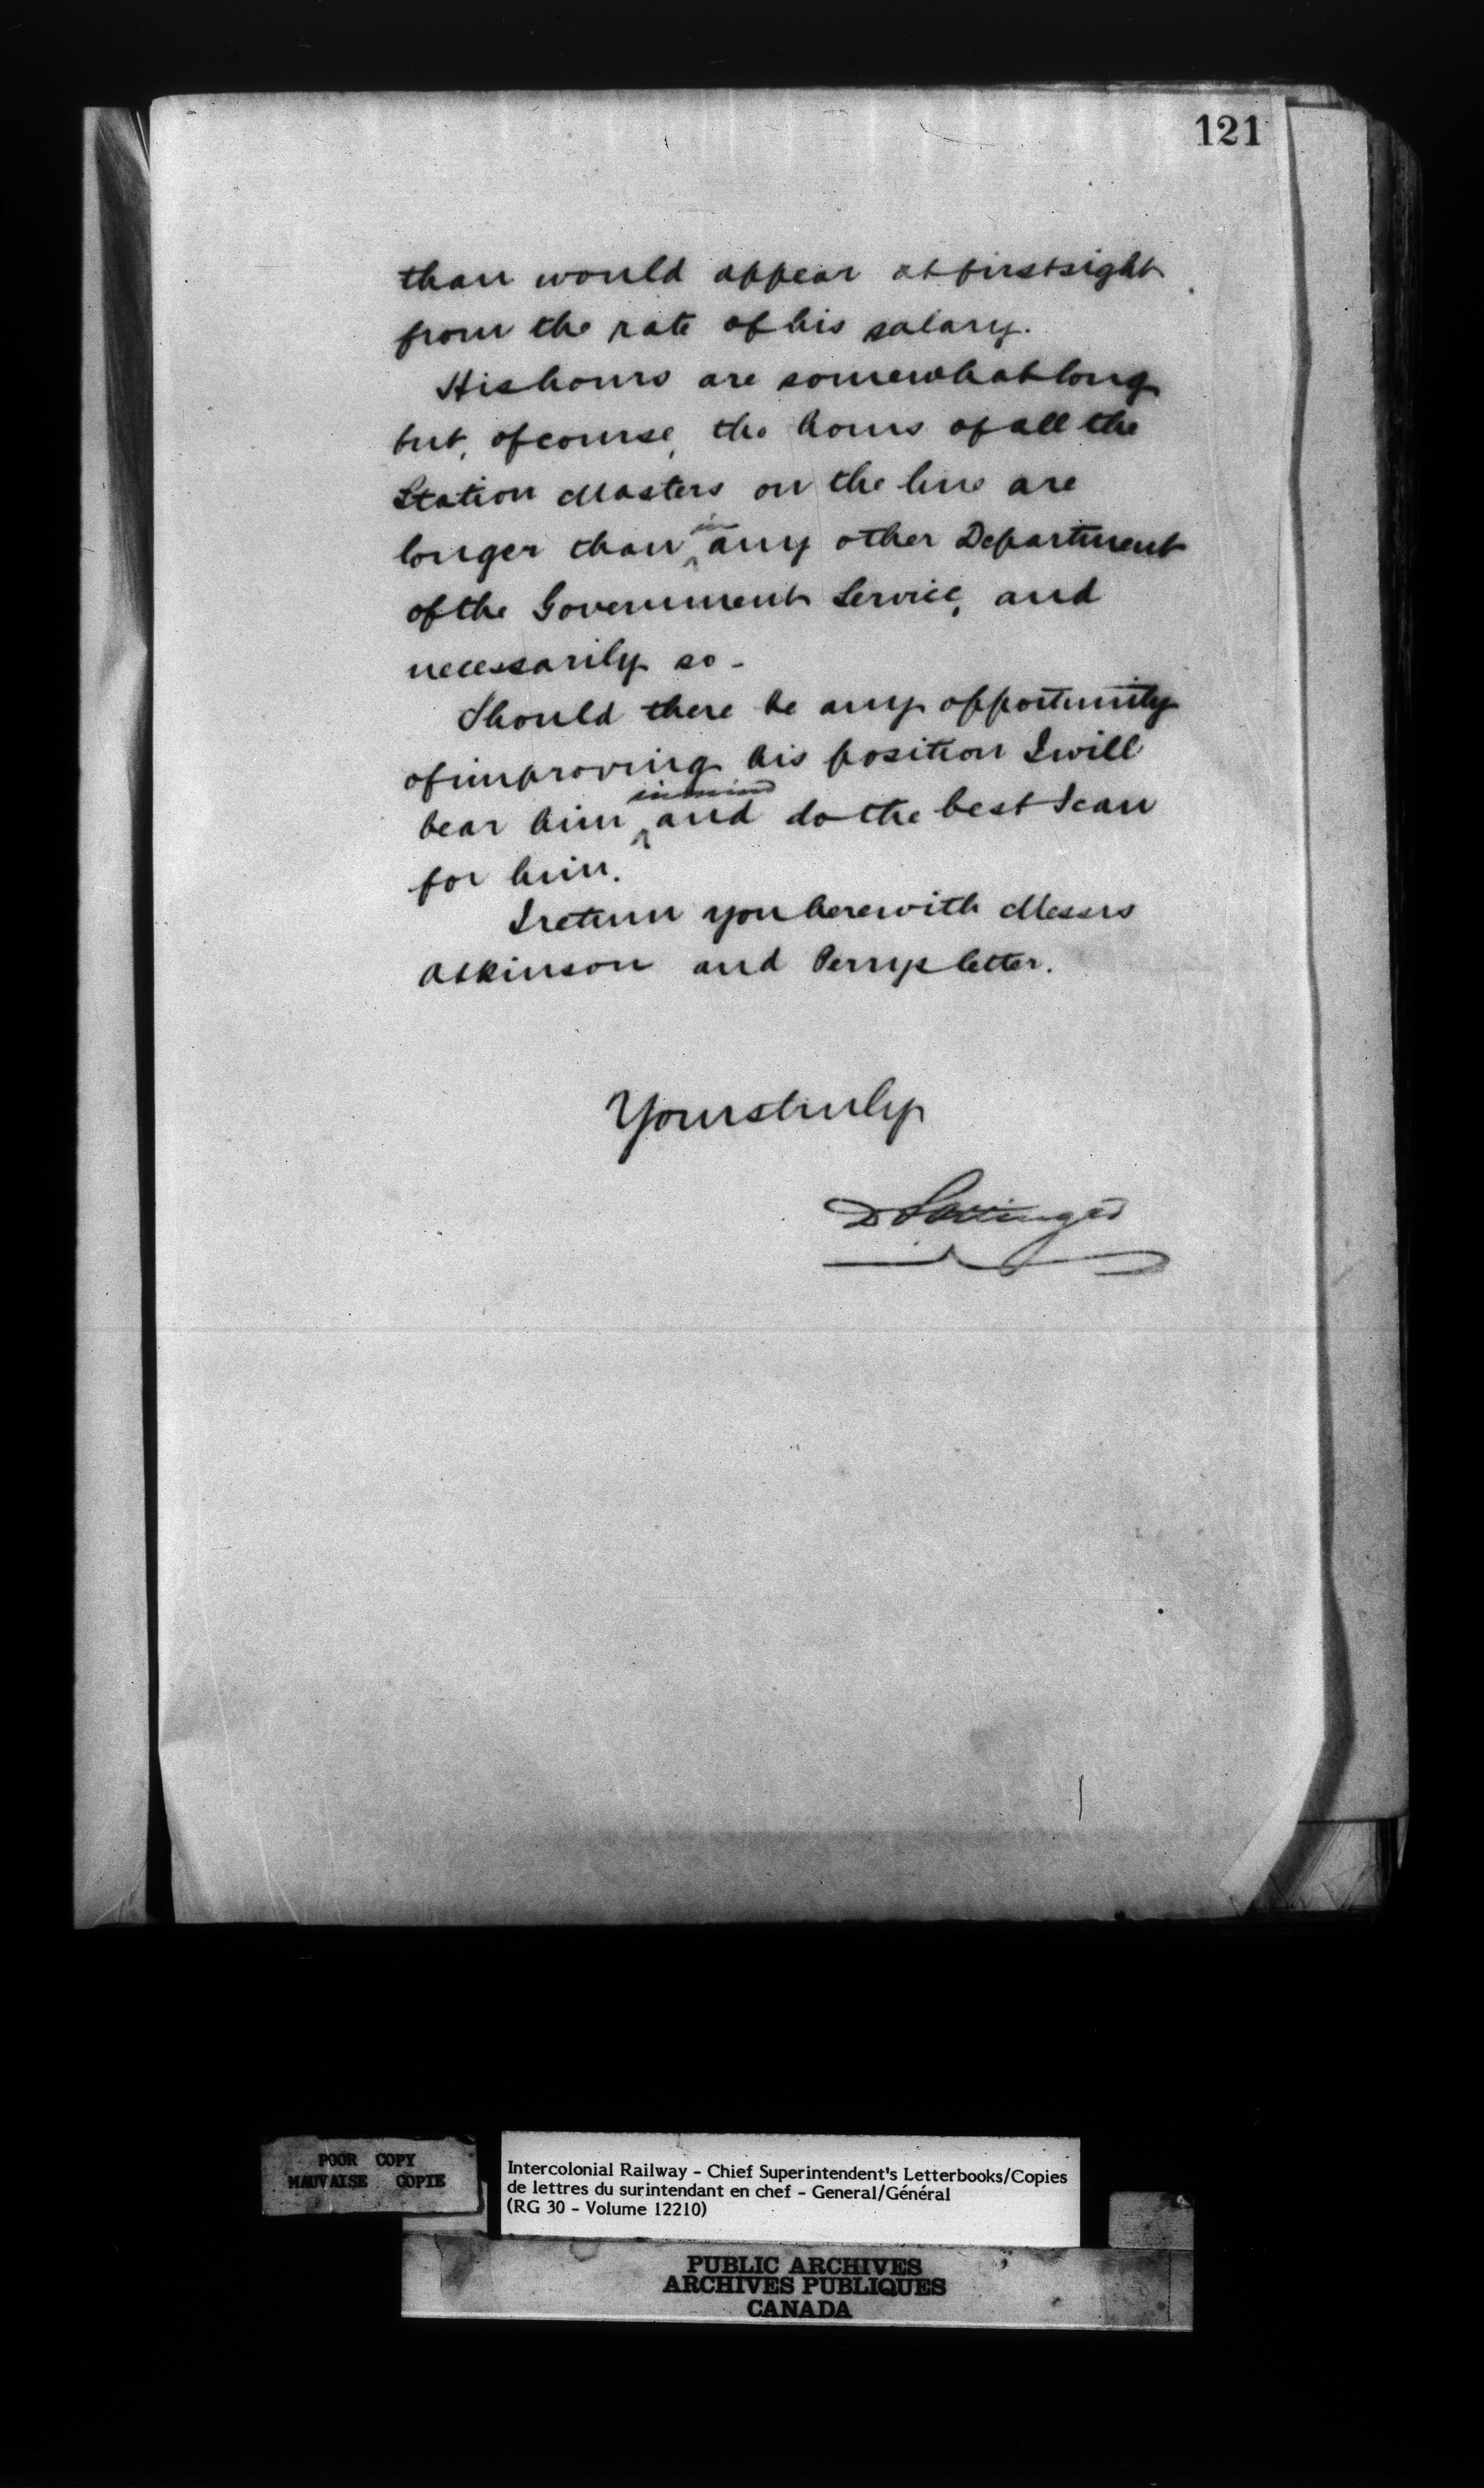 121
than would appear at first sight
from the rate of his salary.
His hours are somewhat long
but, of course, the hours of all the
Station Masters on the line are
longer than in any other Department
of the Government Service, and
necessarily so -
Should there be any opportunity
of improving his position I will
bear him in mind and do the best I can
for him.
I return you herewith Messrs
Atkinson and Perrys letter.
Yours truly
D Pottinger
POOR COPY
MAUVAISE COPIE
Intercolonial Railway - Chief Superintendent's Letterbooks/Copies
de lettres du surintendant en chef - General/Général
(RG 30 - Volume 12210)
PUBLIC ARCHIVES
ARCHIVES PUBLIQUES
CANADA